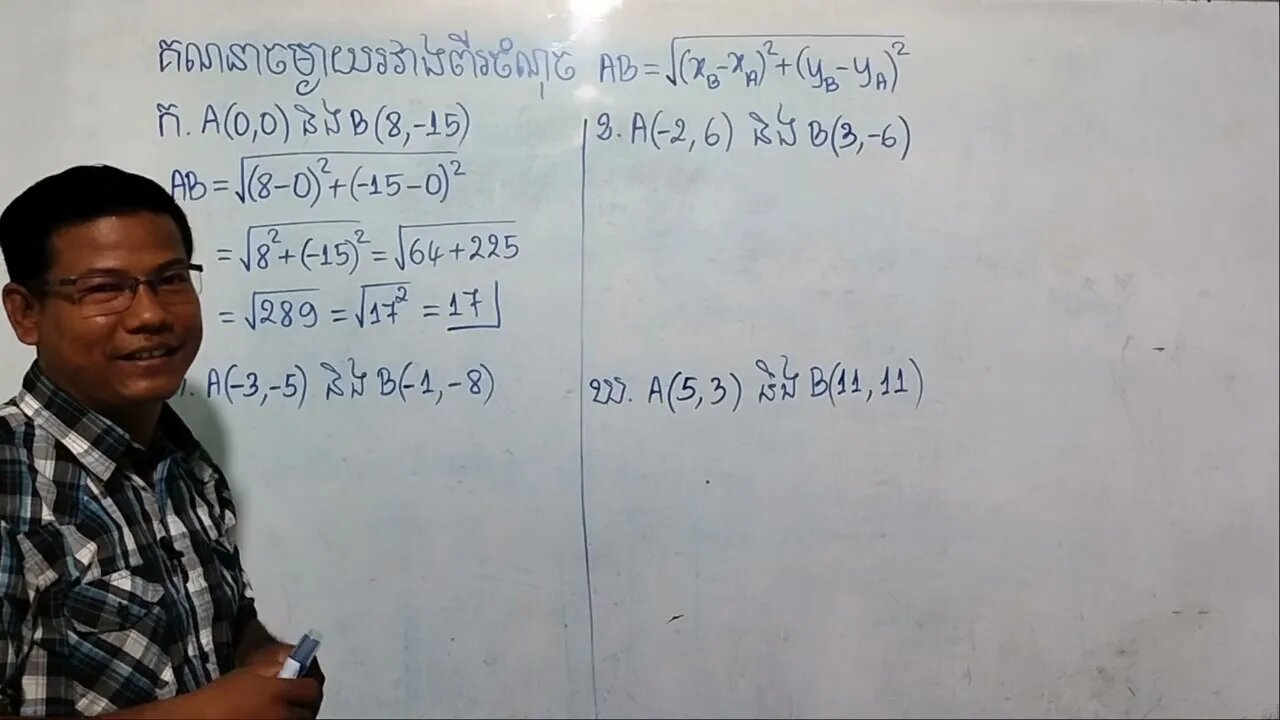 គណនាចម្ងាយរវាងពីរចំណុច AB = √((x_B - x_A)² + (y_B - y_A)²)
ក. A(0,0) និង B(8,-15)
AB = √((8-0)² + (-15-0)²)
= √(8² + (-15)²) = √(64 + 225)
= √289 = √17² = 17
ខ. A(-2, 6) និង B(3,-6)
A(-3,-5) និង B(-1,-8)
ឃ. A(5,3) និង B(11,11)